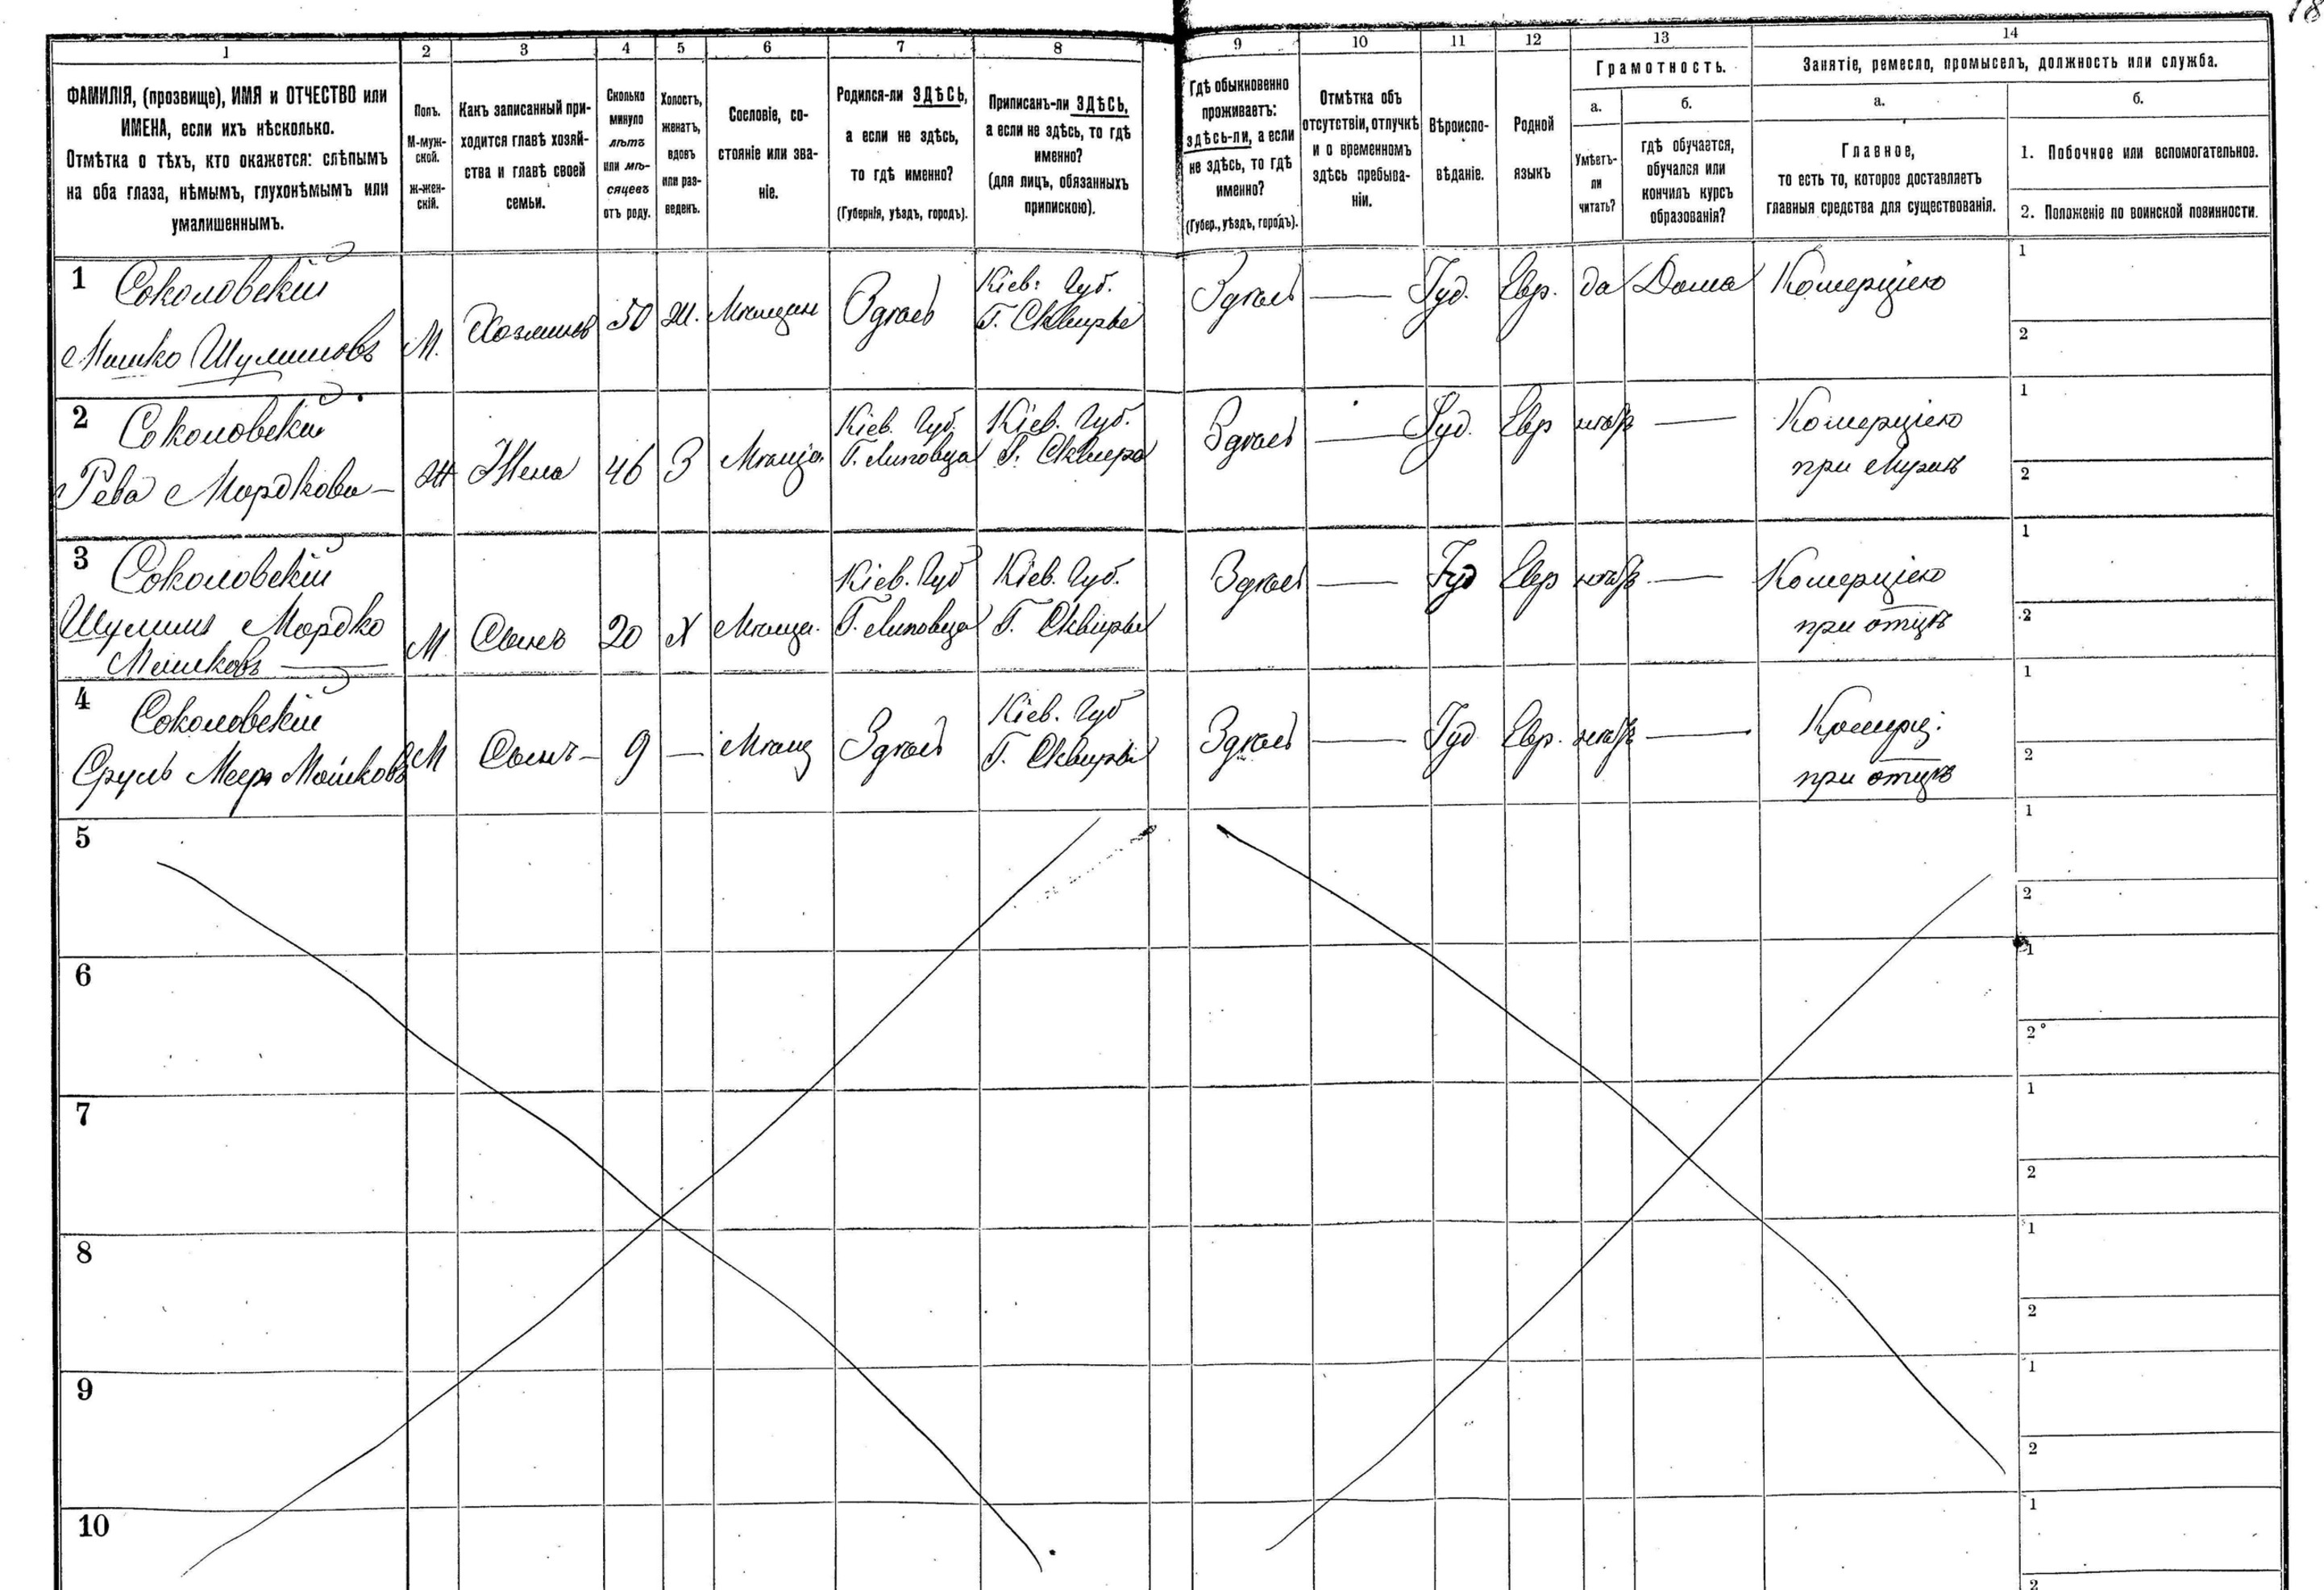 18
1 2 3 4 5 6 7 8 9 10 11 12 13 14
ФАМИЛІЯ, (прозвище), ИМЯ и ОТЧЕСТВО или
ИМЕНА, если ихъ нѣсколько.
Отмѣтка о тѣхъ, кто окажется: слѣпымъ
на оба глаза, нѣмымъ, глухонѣмымъ или
умалишеннымъ.
Полъ.
М-муж-
ской.
Ж-жен-
скій.
Какъ записанный при-
ходится главѣ хозяй-
ства и главѣ своей
семьи.
Сколько
минуло
лѣтъ
или мѣ-
сяцевъ
отъ роду.
Холостъ,
женатъ,
вдовъ
или раз-
веденъ.
Сословіе, со-
стояніе или зва-
ніе.
Родился-ли ЗДѢСЬ,
а если не здѣсь,
то гдѣ именно?
(Губернія, уѣздъ, городъ).
Приписанъ-ли ЗДѢСЬ,
а если не здѣсь, то гдѣ
именно?
(для лицъ, обязанныхъ
припискою).
Гдѣ обыкновенно
проживаетъ:
здѣсь-ли, а если
не здѣсь, то гдѣ
именно?
(Губер., уѣздъ, городъ).
Отмѣтка объ
отсутствіи, отлучкѣ
и о временномъ
здѣсь пребыва-
ніи.
Вѣроиспо-
вѣданіе.
Родной
языкъ
Грамотность.
а.
Умѣетъ-
ли
читать?
б.
гдѣ обучается,
обучался или
кончилъ курсъ
образованія?
Занятіе, ремесло, промыселъ, должность или служба.
а.
Главное,
то есть то, которое доставляетъ
главныя средства для существованія.
б.
1. Побочное или вспомогательное.
2. Положеніе по воинской повинности.
1
Соколовскій
Мошко Шулимовъ
М.
Хозяинъ
50
Ж.
Мѣщан
Здѣсь
Кіев. Губ.
Г. Сквирѣ
Здѣсь
—
Іуд.
Евр.
да
Дома
Комерціею
1
2
2
Соколовска
Рева Мордкова —
Ж
Жена
46
З
Мѣща.
Кіев. Губ.
Г. Липовца
Кіев. Губ.
Г. Сквира
Здѣсь
—
Іуд.
Евр
нѣтъ
—
Комерціею
при мужѣ
1
2
3
Соколовскій
Шулимъ Мордко
Мошковъ —
М
Сынъ
20
Х
Мѣща.
Кіев. Губ
Г. Липовца
Кіев. Губ.
Г. Сквиры
Здѣсь
—
Іуд
Евр
нѣтъ
—
Комерціею
при отцѣ
1
2
4
Соколовскій
Сруль Меер Мошковъ
М
Сынъ —
9
—
Мѣщ
Здѣсь
Кіев. Губ
Г. Сквирѣ
Здѣсь
—
Іуд
Евр.
нѣтъ
—
Комерц.
при отцѣ
1
2
5
1
2
6
1
2
7
1
2
8
1
2
9
1
2
10
1
2